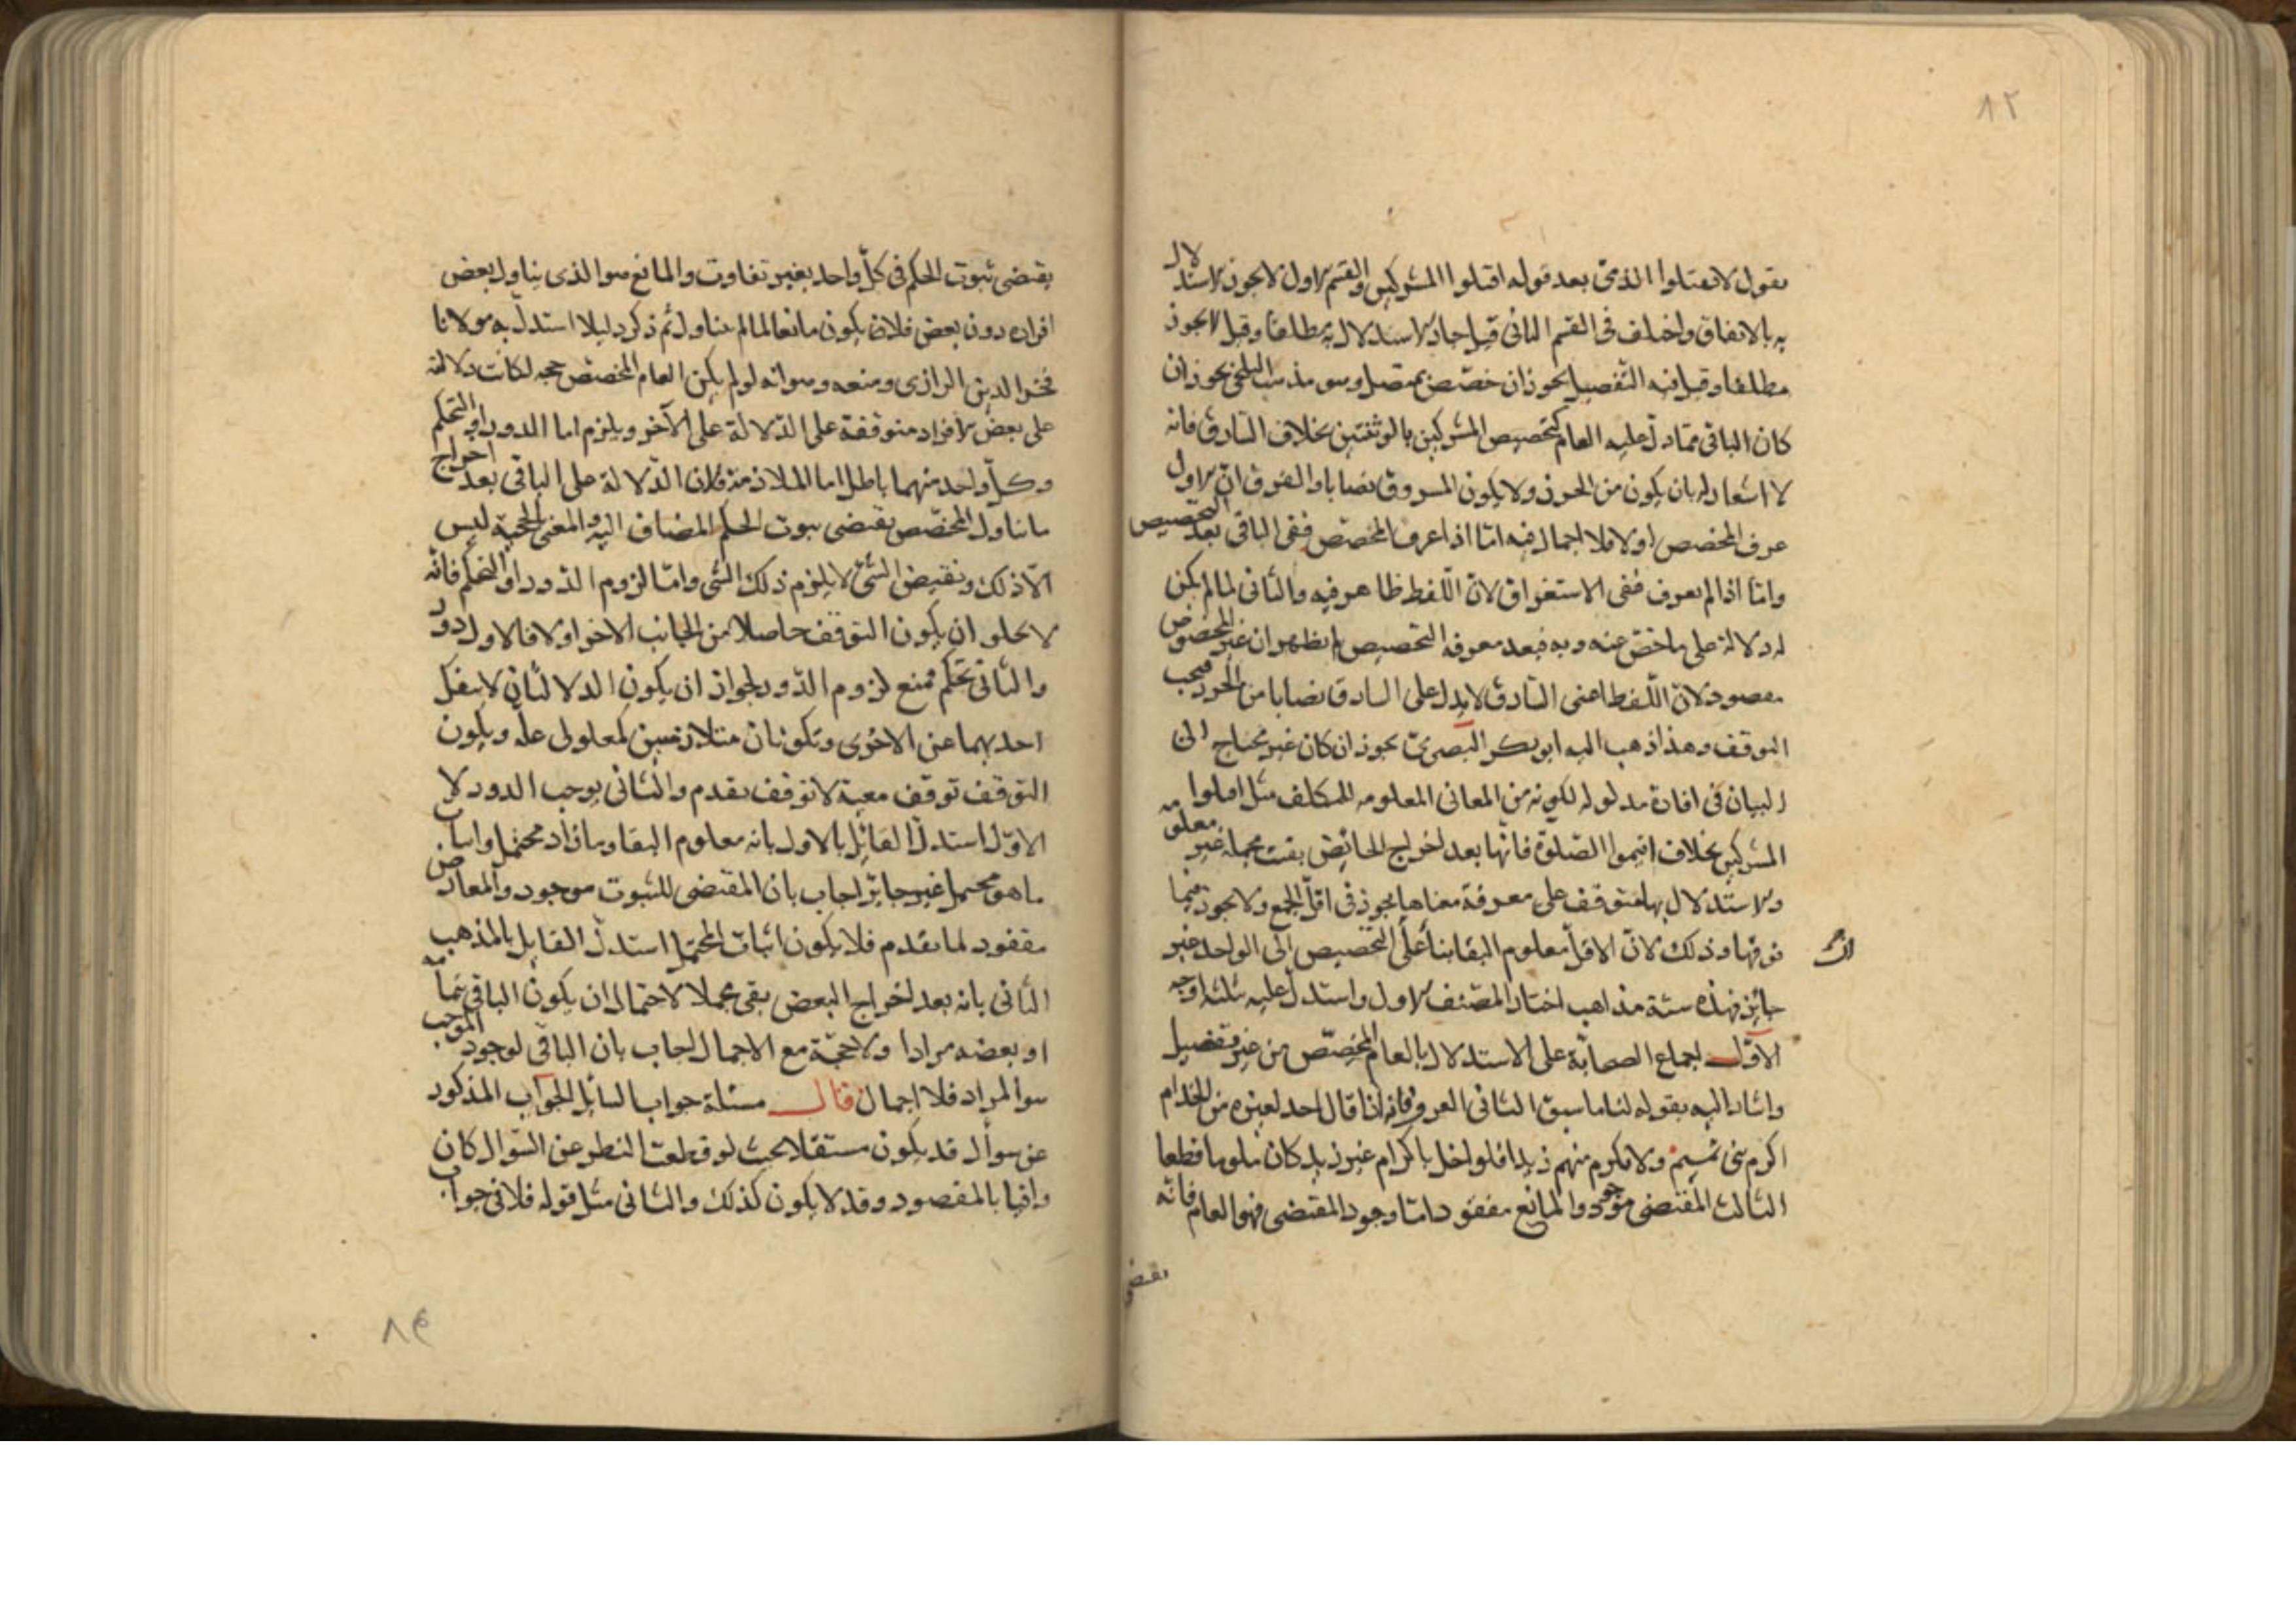 ٨٢
يقول لا تقتلوا الذمى بعد قوله اقتلوا المشركين والقسم الاول لا يجوز الاستدلال
به بالاتفاق واختلف فى القسم الثانى قيل جاز الاستدلال به مطلقا وقيل لا يجوز
مطلقا وقيل فيه التفصيل يجوز ان خصص بمتصل وهو مذهب البلخى يجوز ان
كان الباقى مما دل عليه العام كتخصيص المشركين بالوثنيين بخلاف السارق فانه
لا اشعار له بان يكون من الحرز ولا يكون المسروق نصابا والفرق ان الاول
عرف المخصص اولا فلا اجمال فيه اما اذا عرف المخصص ففى الباقى بعد التخصيص
واما اذا لم يعرف ففى الاستغراق لان اللفظ ظاهر فيه والثانى لما لم يكن
له دلالة على ما خص عنه وبه فبعد معرفة التخصيص لم يظهر ان غير المخصوص
مقصود لان اللفظ اعنى السارق لا يدل على السارق نصابا من الحرز فيجب
التوقف وهذا ذهب اليه ابو بكر البصرى يجوز ان كان غير محتاج الى
البيان فى افادة مدلوله لكونه من المعانى المعلومه للمكلف مثل اقتلوا
المشركين بخلاف اقيموا الصلوة فانها بعد اخراج الحائض بقت مجملة غير معلومه
والاستدلال بها متوقف على معرفة معناها يجوز فى اقل الجمع ولا يجوز فيما
فوقها وذلك لان الاقل معلوم البقا بناء على التخصيص الى الواحد غير
جائز فهذه ستة مذاهب اختار المصنف الاول واستدل عليه بثلثة اوجه
الاول اجماع الصحابة على الاستدلال بالعام المخصص من غير تفصيل
واشار اليه بقوله لنا ما سبق الثانى العرف فانه اذا قال احد لغيره من الخدام
اكرم بنى تميم ولا تكرم منهم زيدا فلو اخل باكرام غير زيد كان ملوما قطعا
الثالث المقتضى موجود والمانع مفقود اما وجود المقتضى فهو العام فانه
يقتضى
يقتضى ثبوت الحكم فى كل واحد بغير تفاوت والمانع هو الذى يناول بعض
افراده دون بعض فلان يكون مانعا لما لم يتناول ثم ذكر دليلا استدل به مولانا
فخر الدين الرازى ومنعه وهو انه لو لم يكن العام المخصص حجه لكانت دلالته
على بعض الافراد متوقفة على الدلالة على الآخر ويلزم اما الدور او التحكم
وكل واحد منهما باطل اما الملازمة فلان الدلالة على الباقى بعد اخراج
ما تناول المخصص يقتضى ثبوت الحكم المضاف اليه والمعنى بالحجية ليس
الا ذلك ونقيض الشئ لا يلزم ذلك الشى واما لزوم الدور او التحكم فانه
لا يخلو ان يكون التوقف حاصلا من الجانب الاخر اولا فالاول دور
والثانى تحكم فمنع لزوم الدور لجواز ان يكون الدلالتان لا ينفك
احديهما عن الاخرى وتكونان متلازمين كمعلولى علة ويكون
التوقف توقف معية لا توقف تقدم والثانى يوجب الدور لا
الاول استدل القائل بالاول بانه معلوم البقا وما زاد محتمل واثبات
ما هو محتمل غير جايز اجاب بان المقتضى للثبوت موجود والمعارض
مفقود لما تقدم فلا يكون اثبات المحتمل استدل القايل بالمذهب
الثانى بانه بعد اخراج البعض بقى مجملا لاحتمال ان يكون الباقى بتمامه
او بعضه مرادا ولا حجة مع الاجمال اجاب بان الباقى لوجود الموجب
هو المراد فلا اجمال قال مسئلة جواب السايل الجواب المذكور
عن سوأل قد يكون مستقلا بحيث لو قطعت النظر عن السوال كان
وافيا بالمقصود وقد لا يكون كذلك والثانى مثل قوله فلا فى جواب